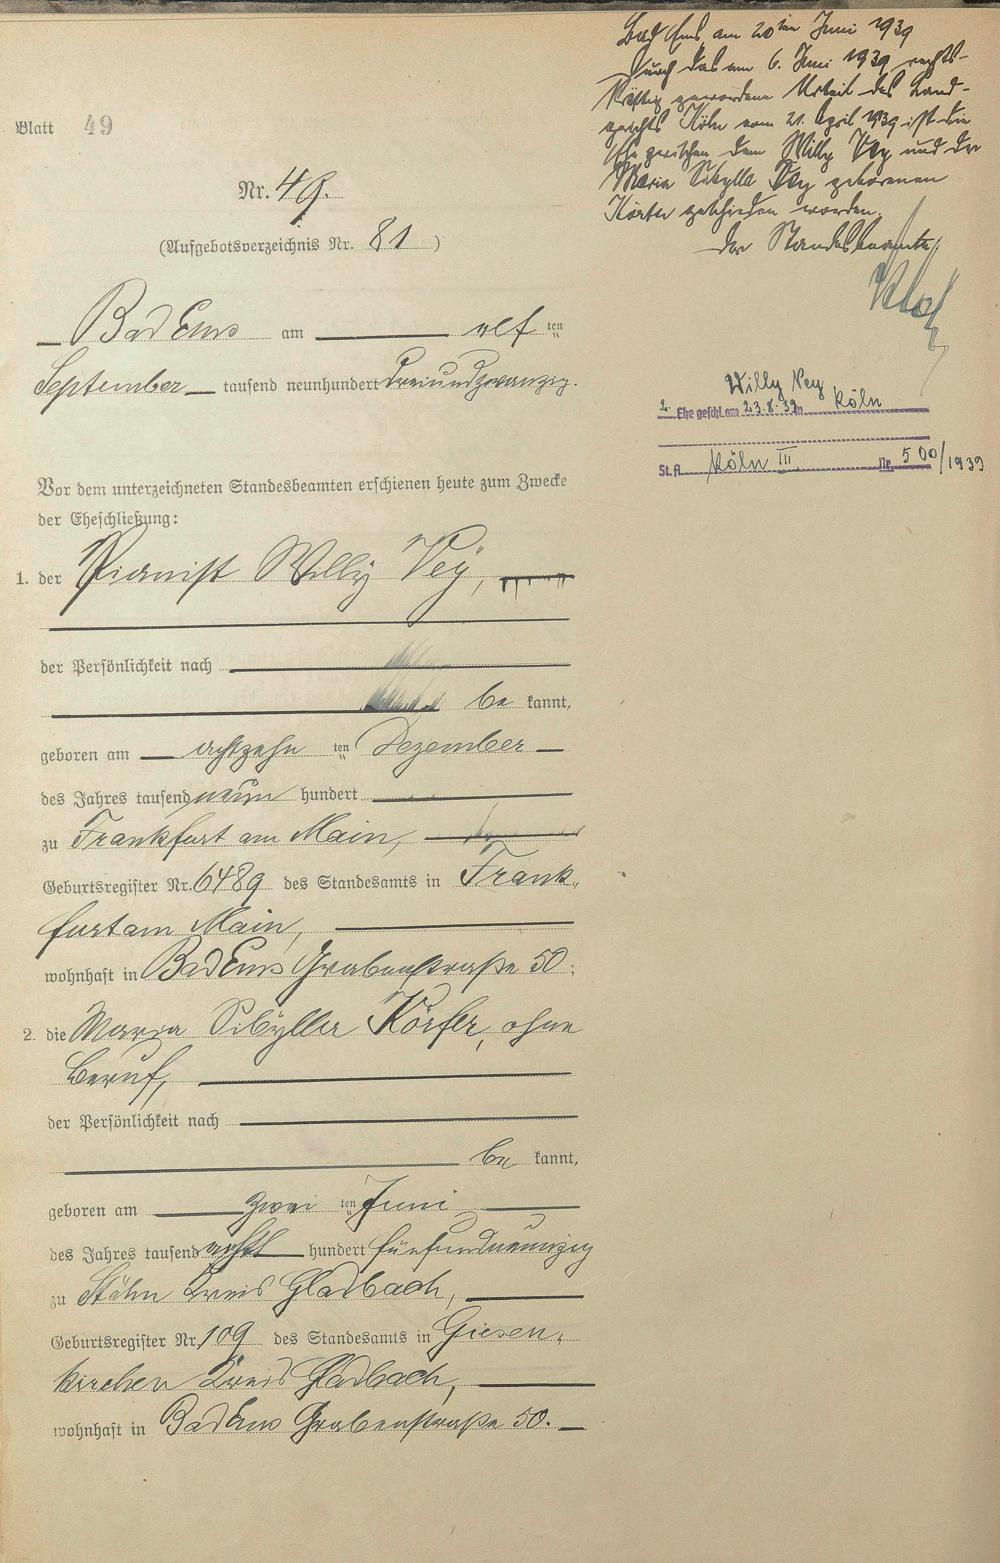 Blatt 49
Nr. 49.
(Aufgebotsverzeichnis Nr. 81)
Bad Ems am elf ten
September tausend neunhundert dreiundzwanzig.
Vor dem unterzeichneten Standesbeamten erschienen heute zum Zwecke
der Eheschließung:
1. der Pianist Willy Vey,
der Persönlichkeit nach
be kannt,
geboren am achtzehn ten Dezember
des Jahres tausend neun hundert
zu Frankfurt am Main,
Geburtsregister Nr. 6489 des Standesamts in Frank-
furt am Main,
wohnhaft in Bad Ems Grabenstraße 50;
2. die Maria Sibylla Körfer, ohne
Beruf,
der Persönlichkeit nach
be kannt,
geboren am zwei ten Juni
des Jahres tausend acht hundert fünfundneunzig
zu Kreis Gladbach,
Geburtsregister Nr. 109 des Standesamts in Giesen-
kirchen Kreis Gladbach,
wohnhaft in Bad Ems Grabenstraße 50.
Bad Ems am 20ten Juni 1939
Durch das am 6. Juni 1939 rechts-
kräftig gewordene Urteil des Land-
gerichts Köln vom 21. April 1939 ist die
Ehe zwischen dem Willy Vey und der
Maria Sibylla Vey geborenen
Körfer geschieden worden.
Der Standesbeamte:
Willy Vey
2. Ehe geschl. am 23.8.39 in Köln
St. A. Köln III Nr. 500/1939